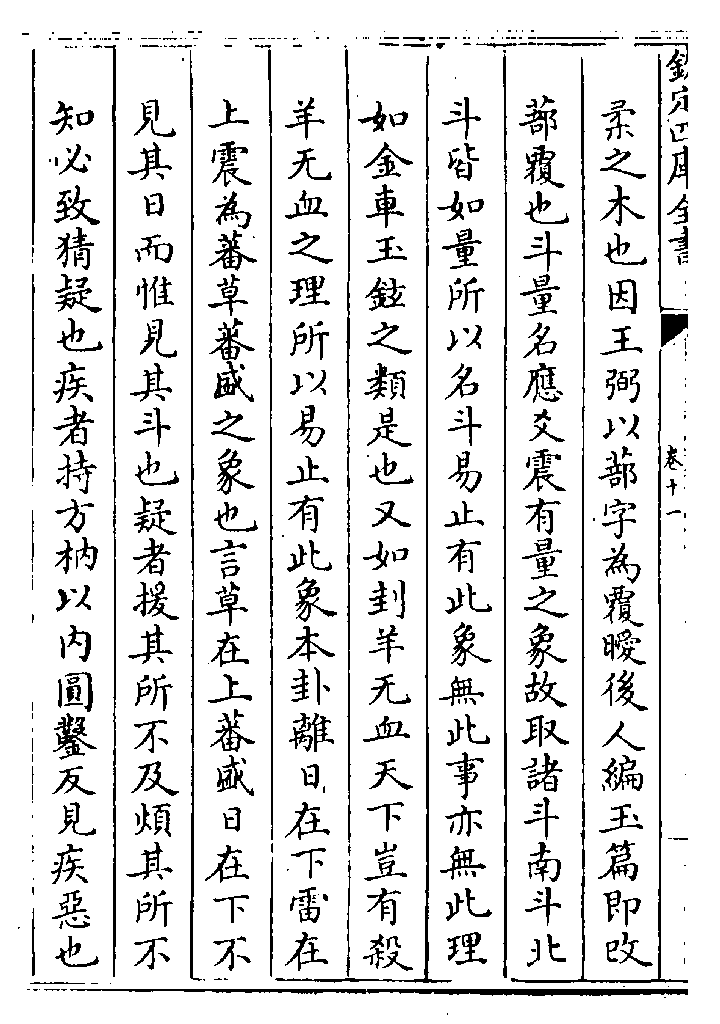 欽定四庫全書
卷十一
柔之木也因王弼以蔀字為覆曖後人編玉篇即改
蔀覆也斗量名應爻震有量之象故取諸斗南斗北
斗皆如量所以名斗易止有此象無此事亦無此理
如金車玉鉉之類是也又如刲羊无血天下豈有殺
羊无血之理所以易止有此象本卦離日在下雷在
上震為蕃草蕃盛之象也言草在上蕃盛日在下不
見其日而惟見其斗也疑者援其所不及煩其所不
知必致猜疑也疾者持方枘以内圓鑿反見疾惡也